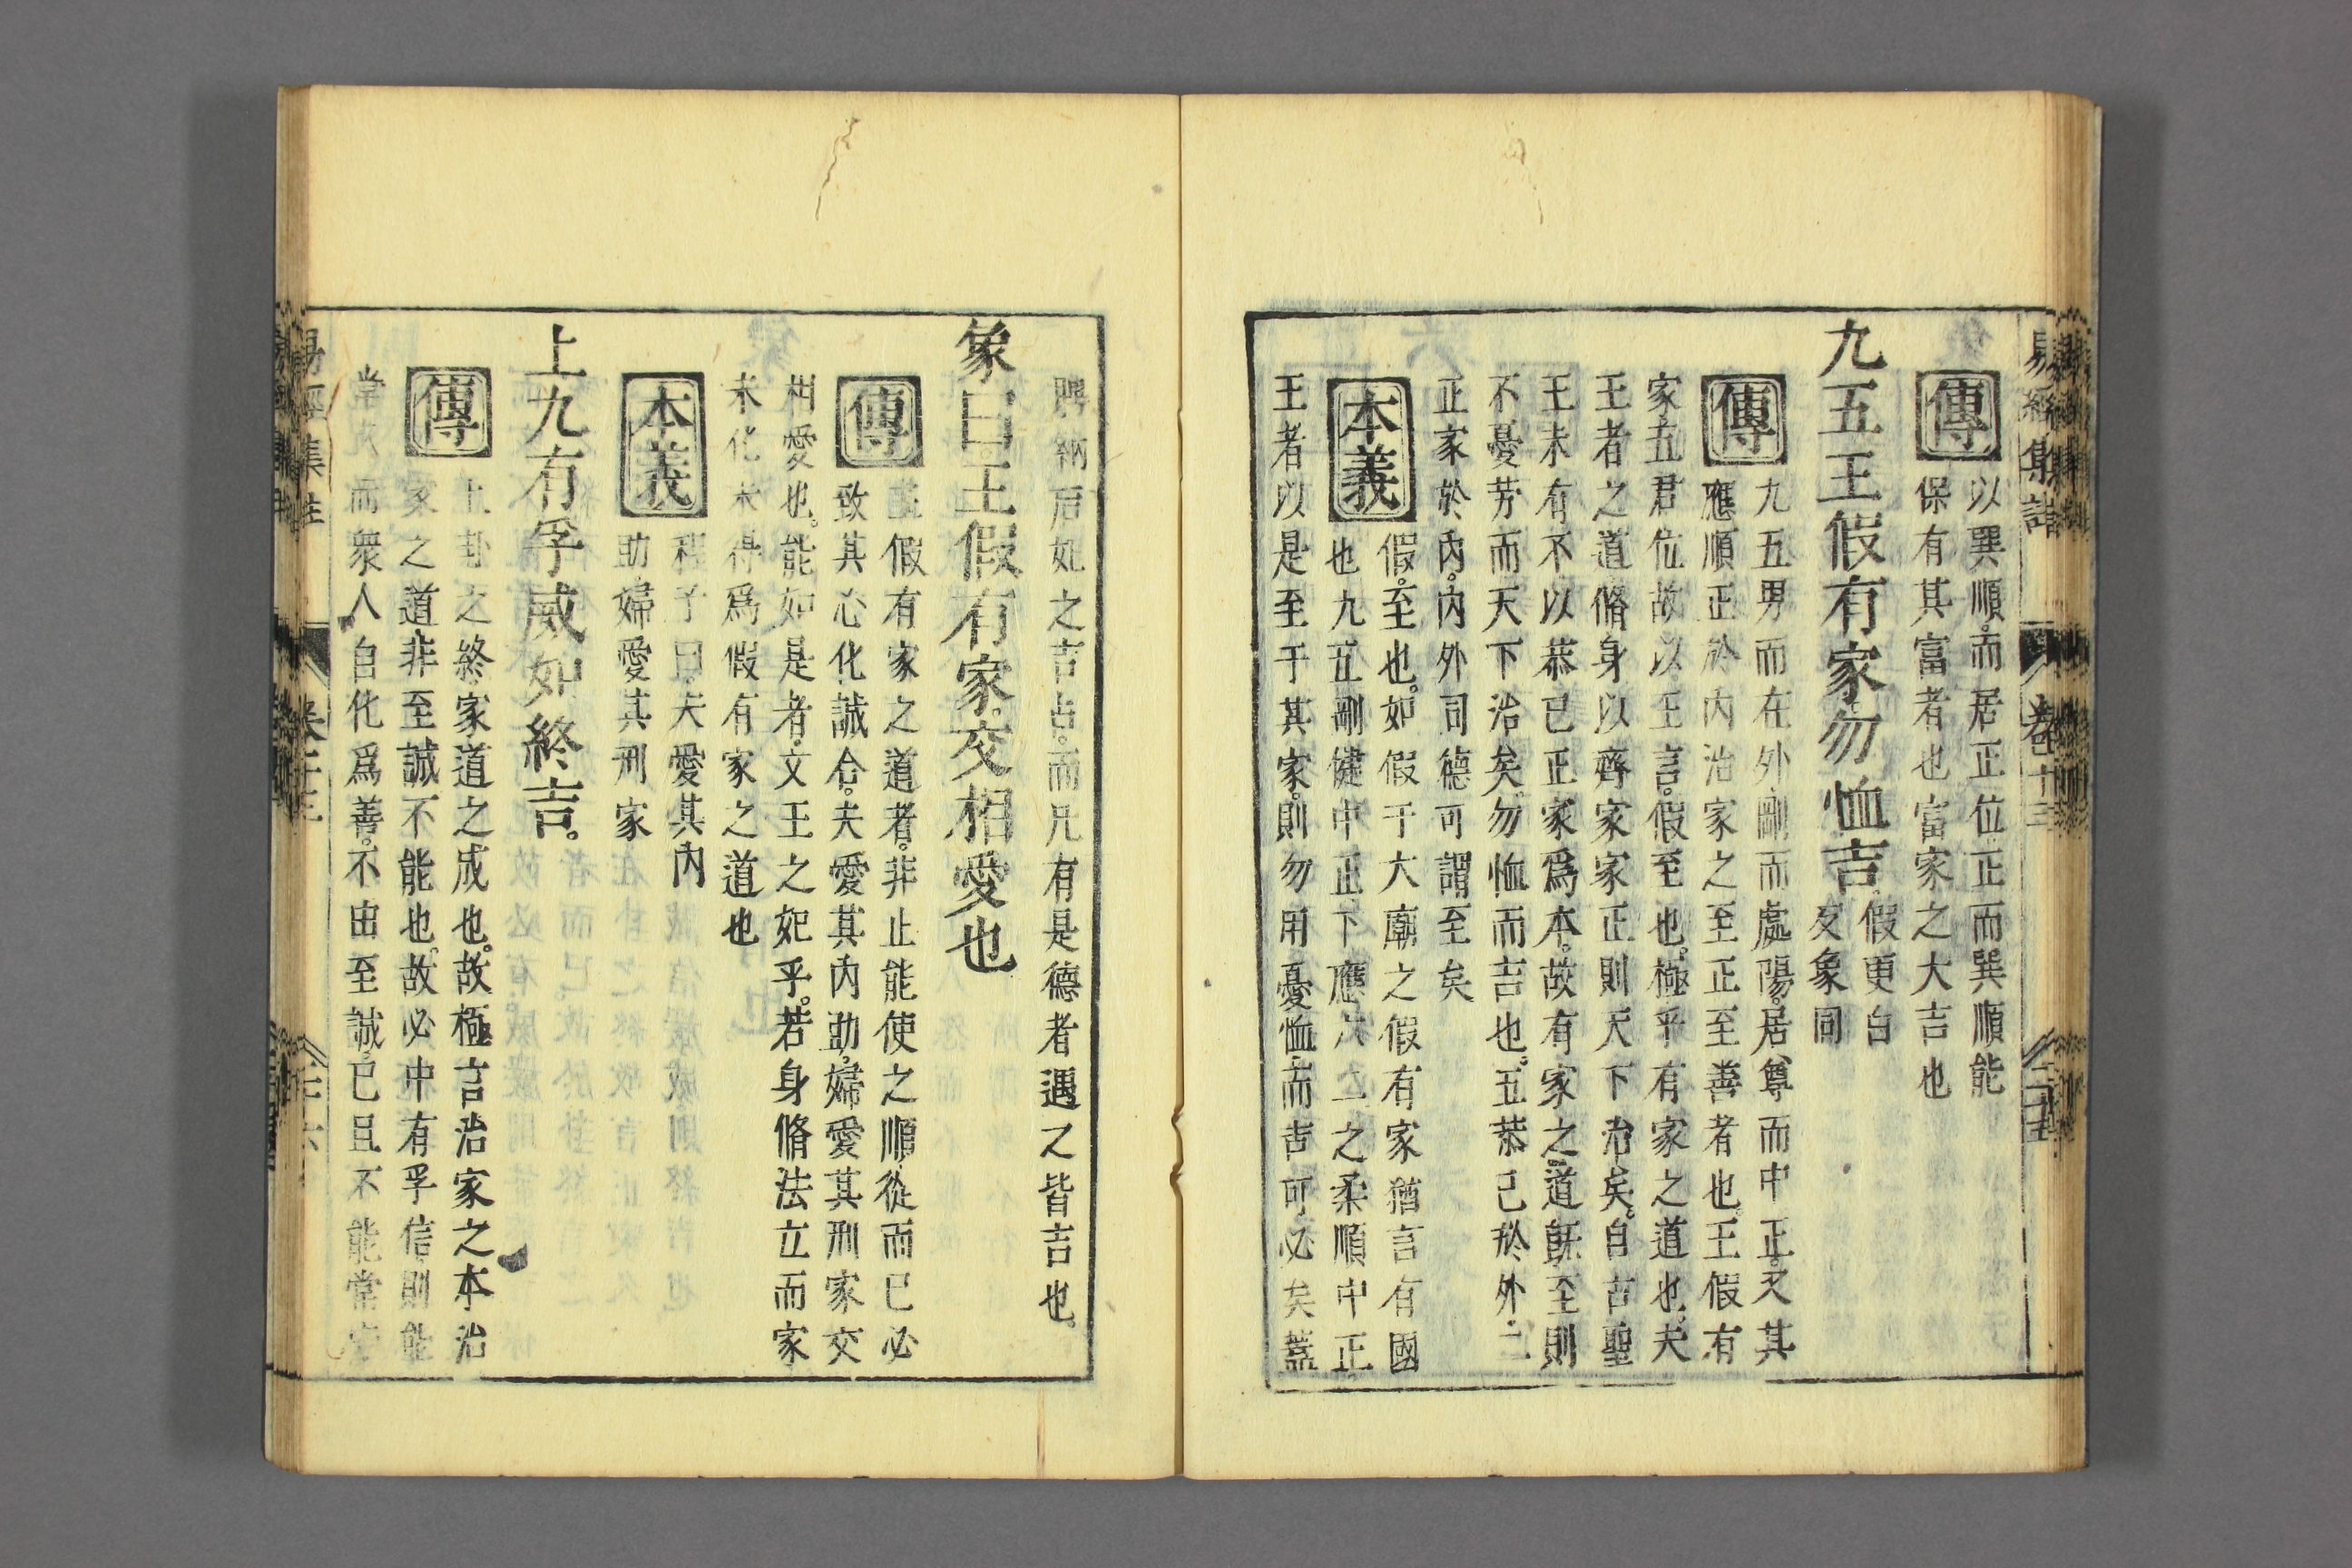 易經集註 卷十三
傳 以巽順而居正位正而巽順能
保有其富者也富家之大吉也
九五王假有家勿恤吉 假更白
反象同
傳 九五男而在外剛而處陽居尊而中正又其
應順正於內治家之至正至善者也王假有
家五君位故以王言假至也極乎有家之道也夫
王者之道脩身以齊家家正則天下治矣自古聖
王未有不以恭己正家爲本故有家之道旣至則
不憂勞而天下治矣勿恤而吉也五恭己於外二
正家於內內外同德可謂至矣
本義 假至也如假于大廟之假有家猶言有國
也九五剛健中正下應六二之柔順中正
王者以是至于其家則勿用憂恤而吉可必矣蓋
聘納后妃之吉占而凡有是德者遇之皆吉也
象曰王假有家交相愛也
傳 王假有家之道者非止能使之順從而已必
致其心化誠合夫愛其內助婦愛其刑家交
相愛也能如是者文王之妃乎若身脩法立而家
未化未得爲假有家之道也
本義 程子曰夫愛其內
助婦愛其刑家
上九有孚威如終吉
傳 上卦之終家道之成也故極言治家之本治
家之道非至誠不能也故必中有孚信則能
常久而衆人自化爲善不由至誠已且不能常守
易經集註 卷十三